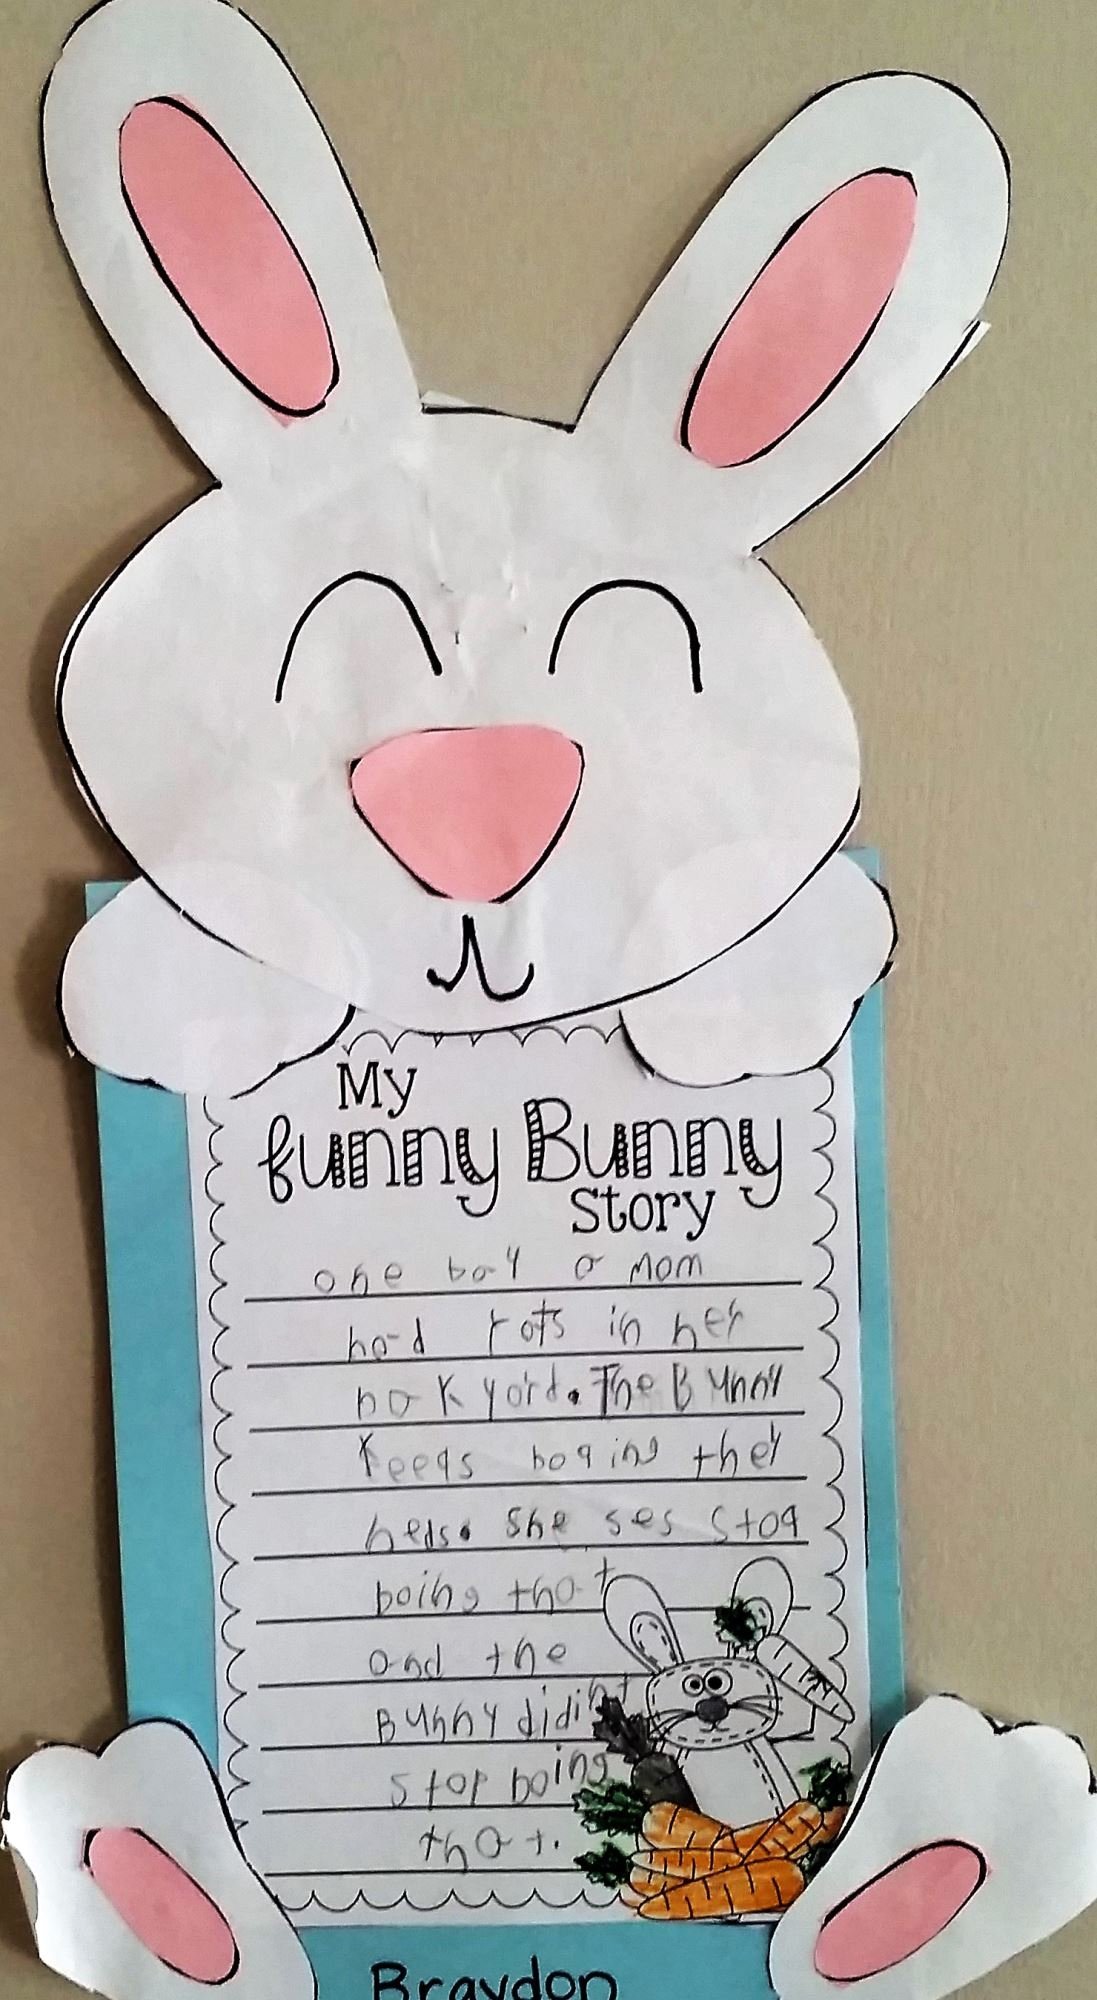 My
funny Bunny
Story
one bay a mom
had rats in her
bak yard. The Bunny
keeqs boqing ther
heds. she ses stoq
boing that
and the
Bunny didint
stop boing
that.
Braydon